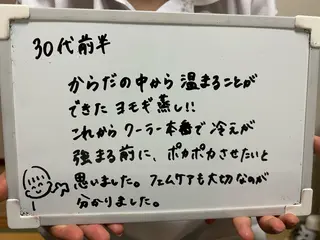 30代前半
からだの中から温まることが
できたヨモギ蒸し!!
これからクーラー本番で冷えが
強まる前に、ポカポカさせたいと
思いました。フェムケアも大切なのが
分かりました。